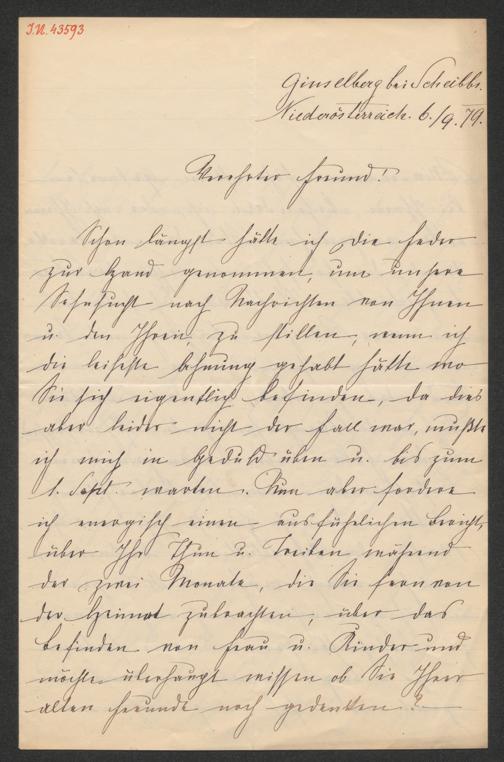 I.N. 43593
Ginselberg bei Scheibbs.
Niederösterreich. 6./9. 79.
Verehrter Freund!
Schon längst hätte ich die Feder
zur Hand genommen, um unsere
Sehnsucht nach Nachrichten von Ihnen
u. den Ihren, zu stillen, wenn ich
die leiseste Ahnung gehabt hätte wo
Sie sich eigentlich befinden, da dies
aber leider nicht der Fall war, mußte
ich mich in Geduld üben u. bis zum
1. Sept. warten. Nun aber fordere
ich energisch einen ausführlichen Bericht,
über Ihr Thun u. Treiben während
der zwei Monate, die Sie fern von
der Heimat zubrachten, über das
Befinden von Frau u. Kinder und
möchte überhaupt wissen ob Sie Ihrer
alten Freunde noch gedenken?